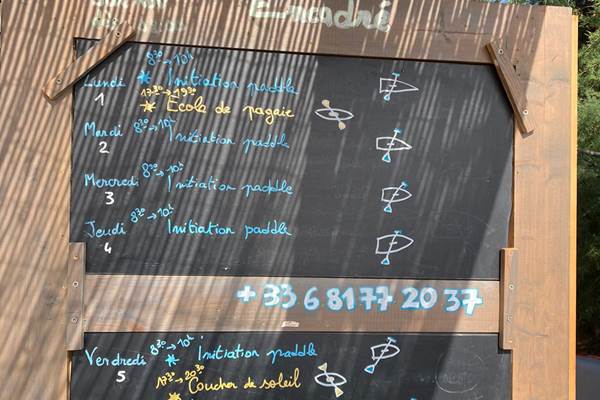 Encadré
8h30 → 10h
Lundi * Initiation paddle
1 17h30 → 19h30
* Ecole de pagaie
Mardi 8h30 → 10h Initiation paddle
2
Mercredi 8h30 → 10h Initiation paddle
3
Jeudi 8h30 → 10h Initiation paddle
4
+33 6 81 77 20 37
Vendredi 8h30 → 10h * Initiation paddle
5
* Coucher de soleil